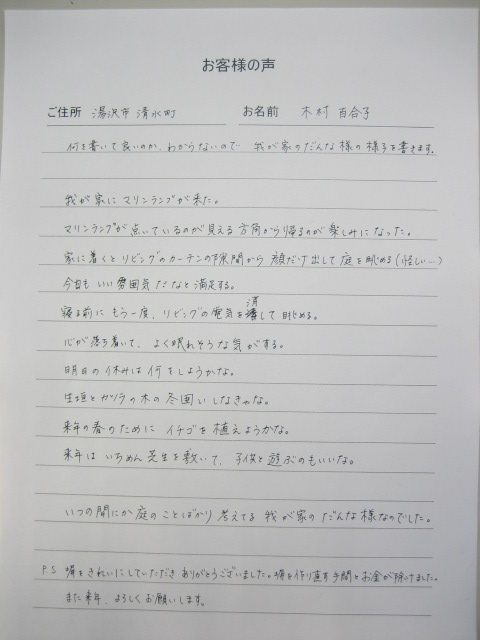 お客様の声
ご住所 湯沢市 清水町 お名前 木村 百合子
何を書いて良いのか、わからないので 我が家のだんな様の様子を書きます。
我が家にマリンランプが来た。
マリンランプが点いているのが見える方角から帰るのが楽しみになった。
家に着くとリビングのカーテンの隙間から顔だけ出して庭を眺める(怪しい…)
今日もいい雰囲気だなと満足する。
寝る前にもう一度、リビングの電気を消して眺める。
心が落ち着いて、よく眠れそうな気がする。
明日の休みは何をしようかな。
生垣とカツラの木の冬囲いしなきゃな。
来年の春のためにイチゴを植えようかな。
来年はいちめん芝生を敷いて、子供と遊ぶのもいいな。
いつの間にか庭のことばかり考えてる我が家のだんな様なのでした。
P.S 塀をきれいにしていただきありがとうございました。塀を作り直す手間とお金が除けました。
また来年、よろしくお願いします。